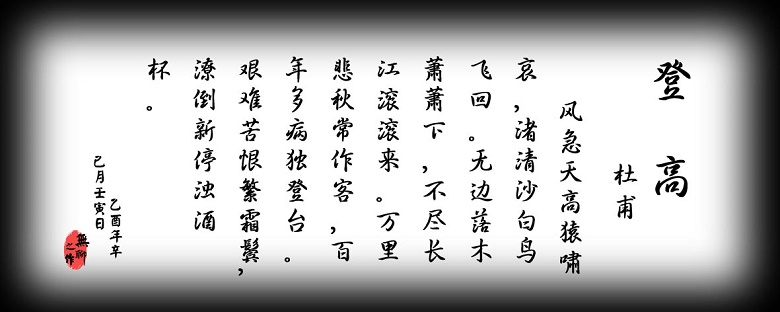 登高
杜甫
风急天高猿啸
哀,渚清沙白鸟
飞回。无边落木
萧萧下,不尽长
江滚滚来。万里
悲秋常作客,百
年多病独登台。
艰难苦恨繁霜鬓,
潦倒新停浊酒
杯。
乙酉年辛
巳月壬寅日
無聊
之作